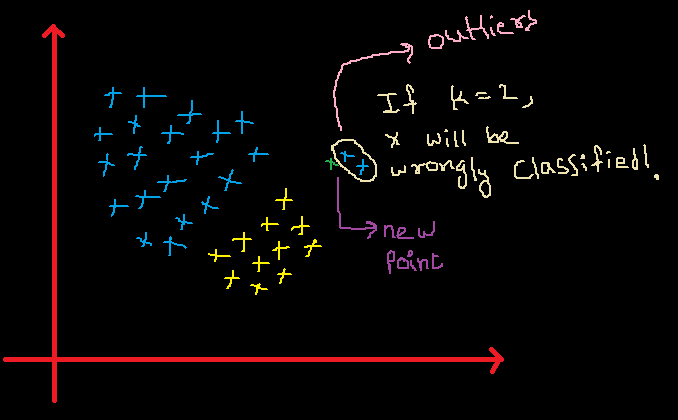 outliers
If k=2,
x will be
wrongly classified!.
new
point